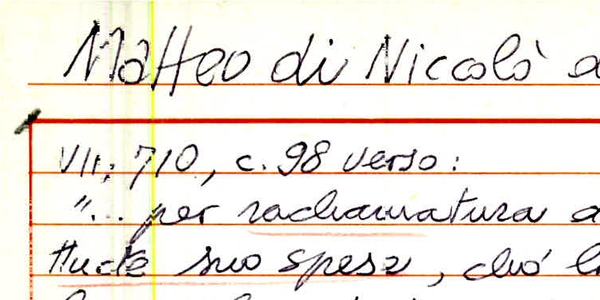 Matteo di Nicolò
VII, 710, c. 98 verso:
"... per rachamatura a
tucte suo spese, chò